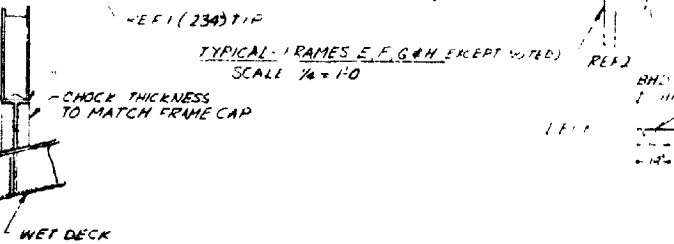 REF 1 (234) TYP
TYPICAL - FRAMES E, F, G & H EXCEPT NOTED)
SCALE 1/4 = 1-0
REF 2
CHOCK THICKNESS
TO MATCH FRAME CAP
BHD
WET DECK